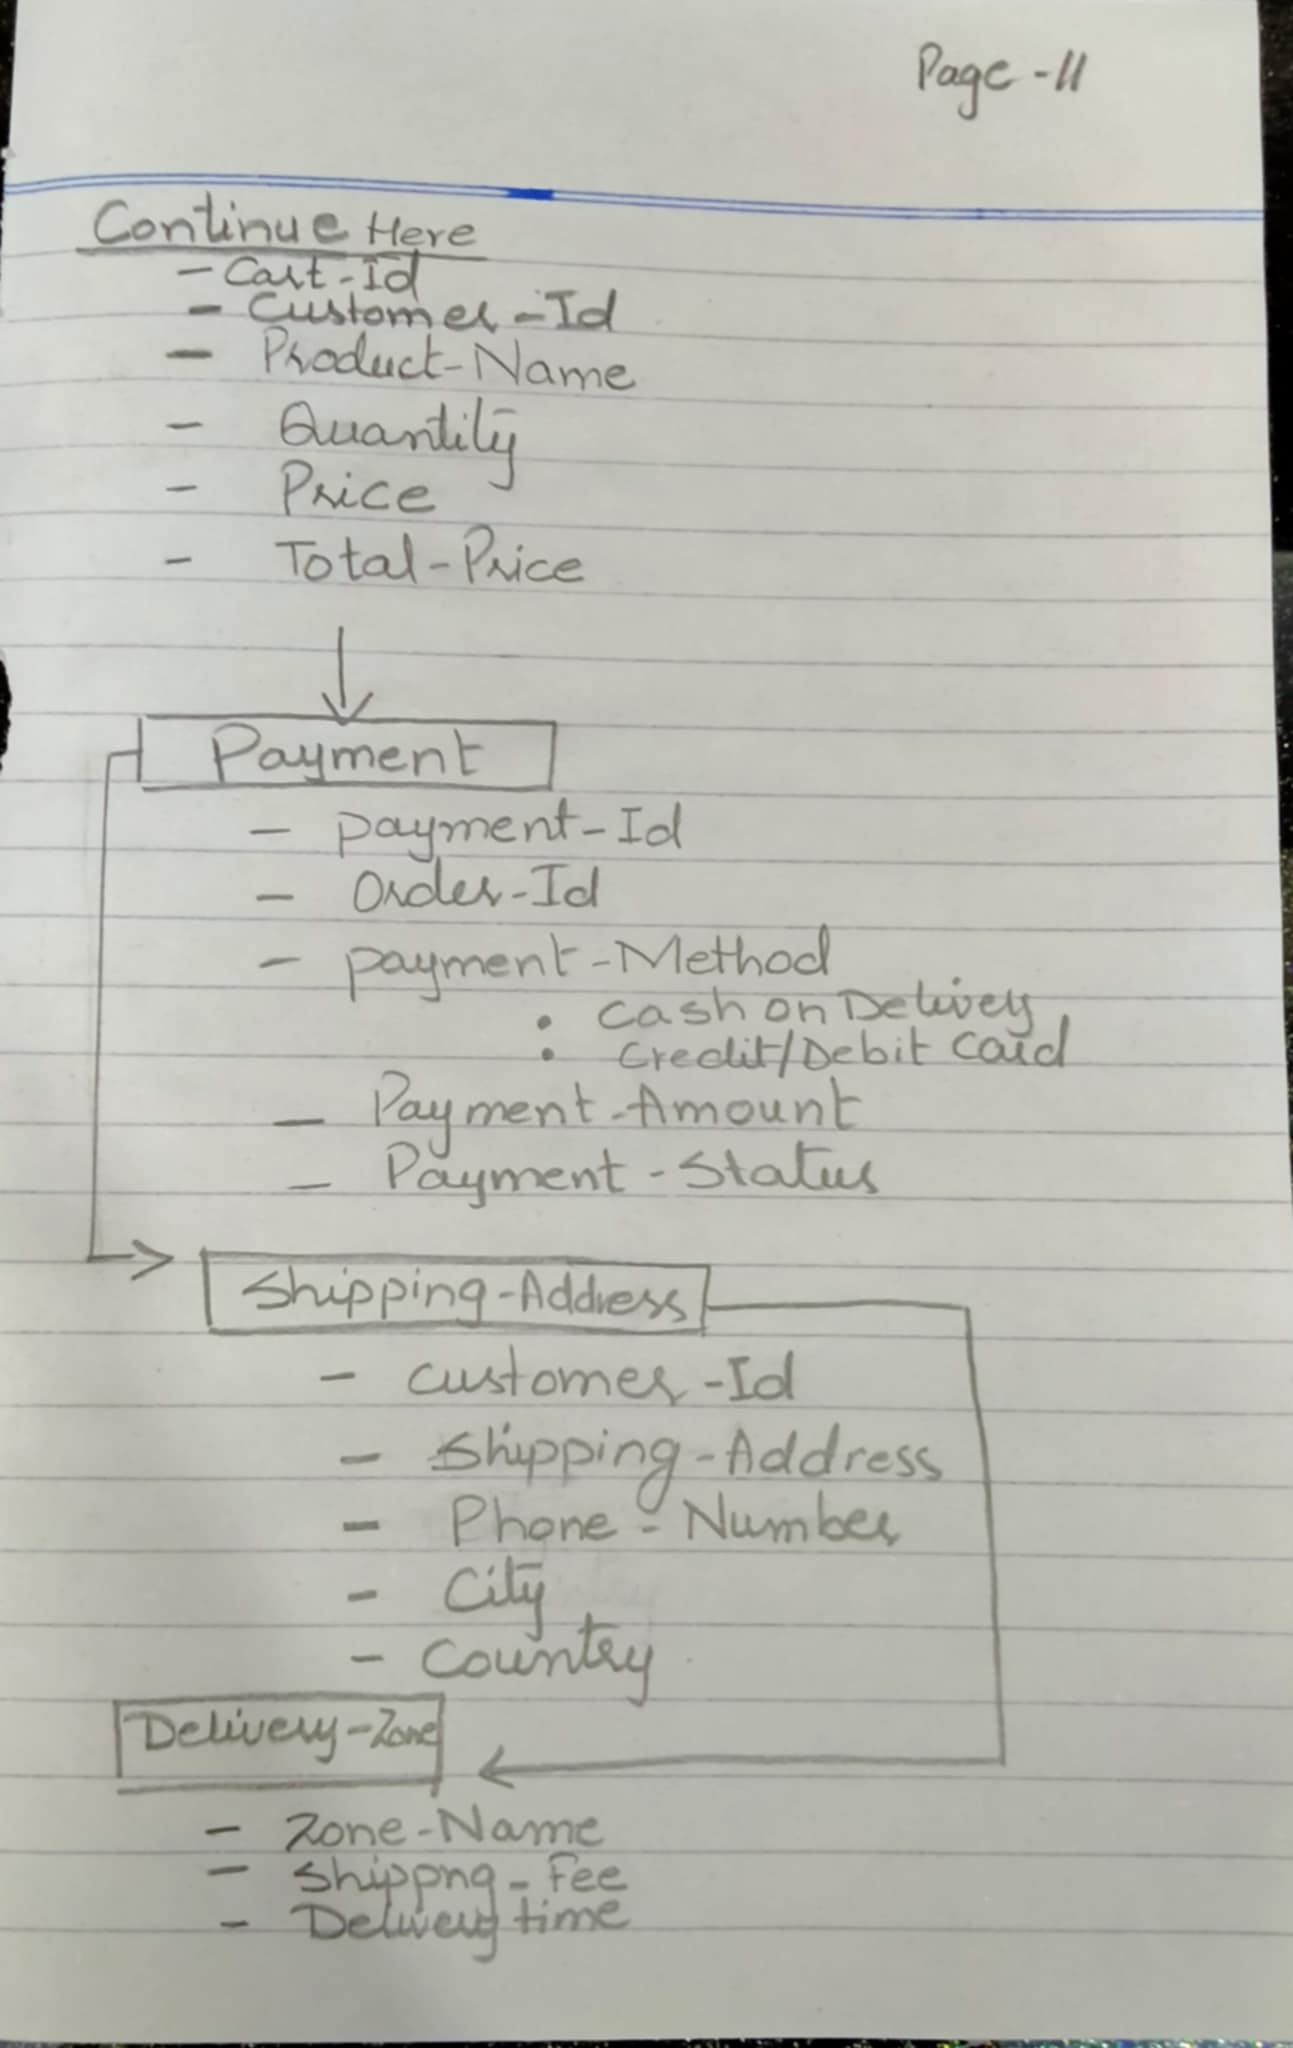 Page - 11
Continue Here
- Cart-Id
- Customer-Id
- Product-Name
- Quantity
- Price
- Total-Price
Payment
- payment-Id
- Order-Id
- payment-Method
• Cash on Delivery
• Credit/Debit Card
- Payment-Amount
- Payment-Status
Shipping-Address
- customer-Id
- Shipping-Address
- Phone-Number
- City
- Country
Delivery-Zone
- Zone-Name
- Shippng-Fee
- Delivery time